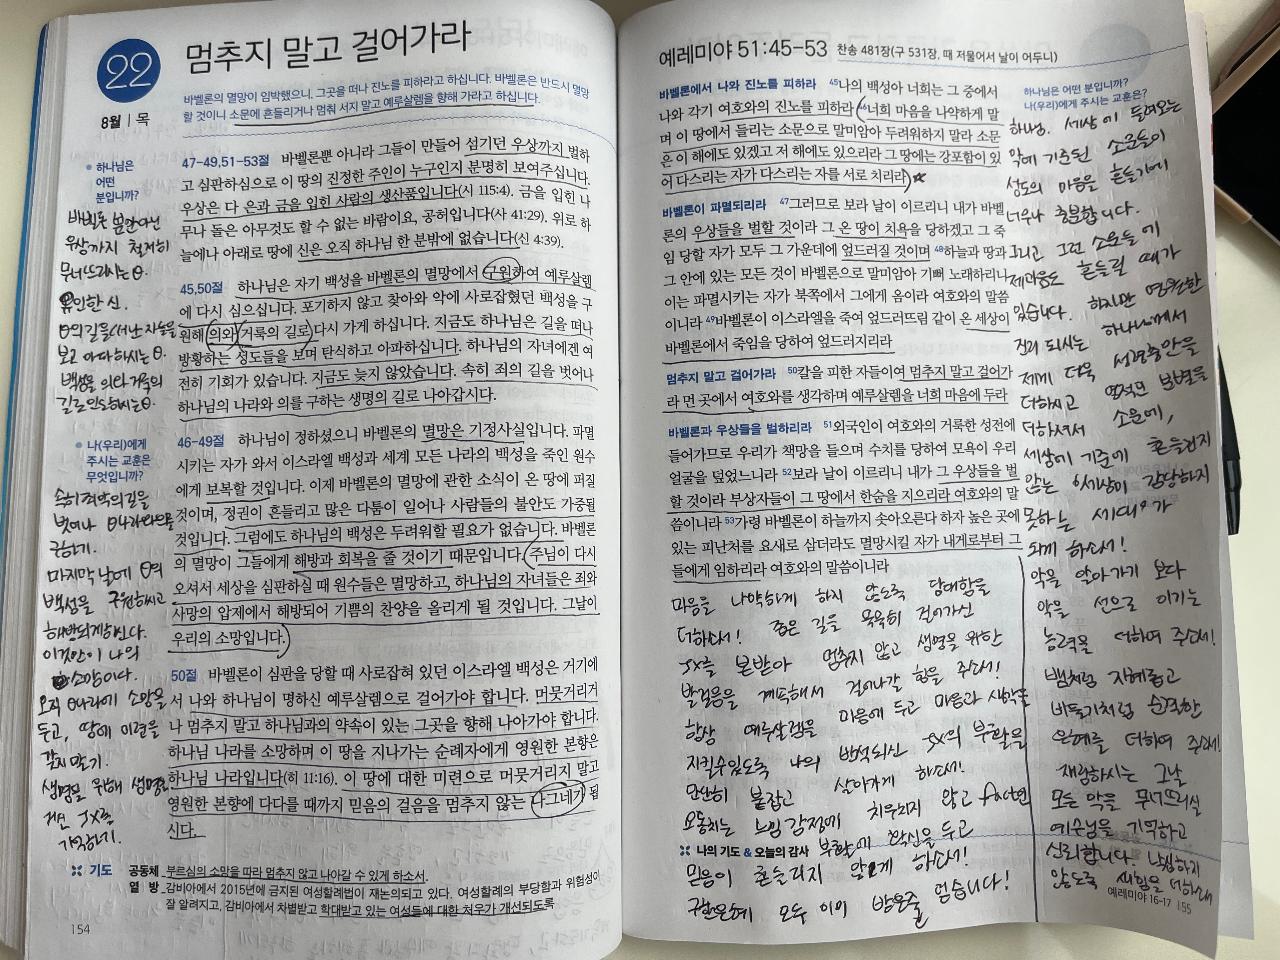 22
8월 | 목
멈추지 말고 걸어가라
바벨론의 멸망이 임박했으니, 그곳을 떠나 진노를 피하라고 하십니다. 바벨론은 반드시 멸망
할 것이니 소문에 흔들리거나 멈춰 서지 말고 예루살렘을 향해 가라고 하십니다.
하나님은
어떤
분입니까?
바벨론 뿐만 아닌
우상까지 철저히
무너뜨리시는
유일한 신.
백성을 의와 거룩의
길로 인도하시는
나(우리)에게
주시는 교훈은
무엇입니까?
속히 죄악의 길을
벗어나
구하기.
마지막 날에
백성을 구원하시고
해방되게 하신다.
이것만이 나의
소망이다.
오직 소망을
두고, 땅에 미련을
갖지 말기.
생명을 위해 생명을
기억하기.
47-49,51-53절 바벨론뿐 아니라 그들이 만들어 섬기던 우상까지 벌하
고 심판하심으로 이 땅의 진정한 주인이 누구인지 분명히 보여주십니다.
우상은 다 은과 금을 입힌 사람의 생산품입니다(시 115:4). 금을 입힌 나
무나 돌은 아무것도 할 수 없는 바람이요, 공허입니다(사 41:29). 위로 하
늘에나 아래로 땅에 신은 오직 하나님 한 분밖에 없습니다(신 4:39).
45,50절 하나님은 자기 백성을 바벨론의 멸망에서 구원하여 예루살렘
에 다시 심으십니다. 포기하지 않고 찾아와 악에 사로잡혔던 백성을 구
원해 의와 거룩의 길로 다시 가게 하십니다. 지금도 하나님은 길을 떠나
방황하는 성도들을 보며 탄식하고 아파하십니다. 하나님의 자녀에겐 여
전히 기회가 있습니다. 지금도 늦지 않았습니다. 속히 죄의 길을 벗어나
하나님의 나라와 의를 구하는 생명의 길로 나아갑시다.
46-49절 하나님이 정하셨으니 바벨론의 멸망은 기정사실입니다. 파멸
시키는 자가 와서 이스라엘 백성과 세계 모든 나라의 백성을 죽인 원수
에게 보복할 것입니다. 이제 바벨론의 멸망에 관한 소식이 온 땅에 퍼질
것이며, 정권이 흔들리고 많은 다툼이 일어나 사람들의 불안도 가중될
것입니다. 그럼에도 하나님의 백성은 두려워할 필요가 없습니다. 바벨론
의 멸망이 그들에게 해방과 회복을 줄 것이기 때문입니다. (주님이 다시
오셔서 세상을 심판하실 때 원수들은 멸망하고, 하나님의 자녀들은 죄와
사망의 압제에서 해방되어 기쁨의 찬양을 올리게 될 것입니다. 그날이
우리의 소망입니다.)
50절 바벨론이 심판을 당할 때 사로잡혀 있던 이스라엘 백성은 거기에
서 나와 하나님이 명하신 예루살렘으로 걸어가야 합니다. 머뭇거리거
나 멈추지 말고 하나님과의 약속이 있는 그곳을 향해 나아가야 합니다.
하나님 나라를 소망하며 이 땅을 지나가는 순례자에게 영원한 본향은
하나님 나라입니다(히 11:16). 이 땅에 대한 미련으로 머뭇거리지 말고
영원한 본향에 다다를 때까지 믿음의 걸음을 멈추지 않는 나그네가 됩
시다.
기도 공동체 부르심의 소망을 따라 멈추지 않고 나아갈 수 있게 하소서.
열 방 감비아에서 2015년에 금지된 여성할례법이 재논의되고 있다. 여성할례의 부당함과 위험성이
잘 알려지고, 감비아에서 차별받고 학대받고 있는 여성들에 대한 처우가 개선되도록
154
예레미야 51:45-53 찬송 481장(구 531장, 때 저물어서 날이 어두니)
바벨론에서 나와 진노를 피하라 45나의 백성아 너희는 그 중에서
나와 각기 여호와의 진노를 피하라 46너희 마음을 나약하게 말
며 이 땅에서 들리는 소문으로 말미암아 두려워하지 말라 소문
은 이 해에도 있겠고 저 해에도 있으리라 그 땅에는 강포함이 있
어 다스리는 자가 다스리는 자를 서로 치리라
바벨론이 파멸되리라 47그러므로 보라 날이 이르리니 내가 바벨
론의 우상들을 벌할 것이라 그 온 땅이 치욕을 당하겠고 그 죽
임 당할 자가 모두 그 가운데에 엎드러질 것이며 48하늘과 땅과
그 안에 있는 모든 것이 바벨론으로 말미암아 기뻐 노래하리니
이는 파멸시키는 자가 북쪽에서 그에게 옴이라 여호와의 말씀
이니라 49바벨론이 이스라엘을 죽여 엎드러뜨림 같이 온 세상이
바벨론에서 죽임을 당하여 엎드러지리라
멈추지 말고 걸어가라 50칼을 피한 자들이여 멈추지 말고 걸어가
라 먼 곳에서 여호와를 생각하며 예루살렘을 너희 마음에 두라
바벨론과 우상들을 벌하리라 51외국인이 여호와의 거룩한 성전에
들어가므로 우리가 책망을 들으며 수치를 당하여 모욕이 우리
얼굴을 덮었느니라 52보라 날이 이르리니 내가 그 우상들을 벌
할 것이라 부상자들이 그 땅에서 한숨을 지으리라 여호와의 말
씀이니라 53가령 바벨론이 하늘까지 솟아오른다 하자 높은 곳에
있는 피난처를 요새로 삼더라도 멸망시킬 자가 내게로부터 그
들에게 임하리라 여호와의 말씀이니라
마음을 나약하게 하지 않도록 담대함을
더하소서! 좁은 길을 묵묵히 걸어가신
본받아 멈추지 않고 생명을 위한
발걸음을 계속해서 걸어나갈 힘을 주소서!
항상 예루살렘을 마음에 두고 마음과 생각을
지킬 수 있도록 나의 반석되신 JX의 부활을
단단히 붙잡고 살아가게 하소서!
요동치는 느낌 감정에 치우치지 않고
나의 기도 & 오늘의 감사 부활에 확신을 두고
믿음이 흔들리지 않게 하소서!
모두 이미 받은줄 믿습니다!
하나님은 어떤 분입니까?
나(우리)에게 주시는 교훈은?
하나님. 세상에 들려오는
악에 기준된 소문들이
성도의 마음을 흔들기에
너무나 충분합니다.
그리고 그런 소문들에
제 마음도 흔들릴 때가
있습니다. 하지만 영원한
진리 되시는 하나님께서
제게 더욱 성령충만을
더하시고 영적인 분별을
더하셔서 소문에,
세상에 기준에 흔들리지
않는 세상이 감당하지
못하는 세대가
되게 하소서!
악을 악으로 갚기 보다
악을 선으로 이기는
능력을 더하여 주소서!
뱀처럼 지혜롭고
비둘기처럼 순결한
은혜를 더하여 주소서!
재림하시는 그날
모든 악을 무너뜨리실
예수님을 기억하고
신뢰합니다. 낙심하지
않도록 새힘을 더하소서
예레미야 16-17 155